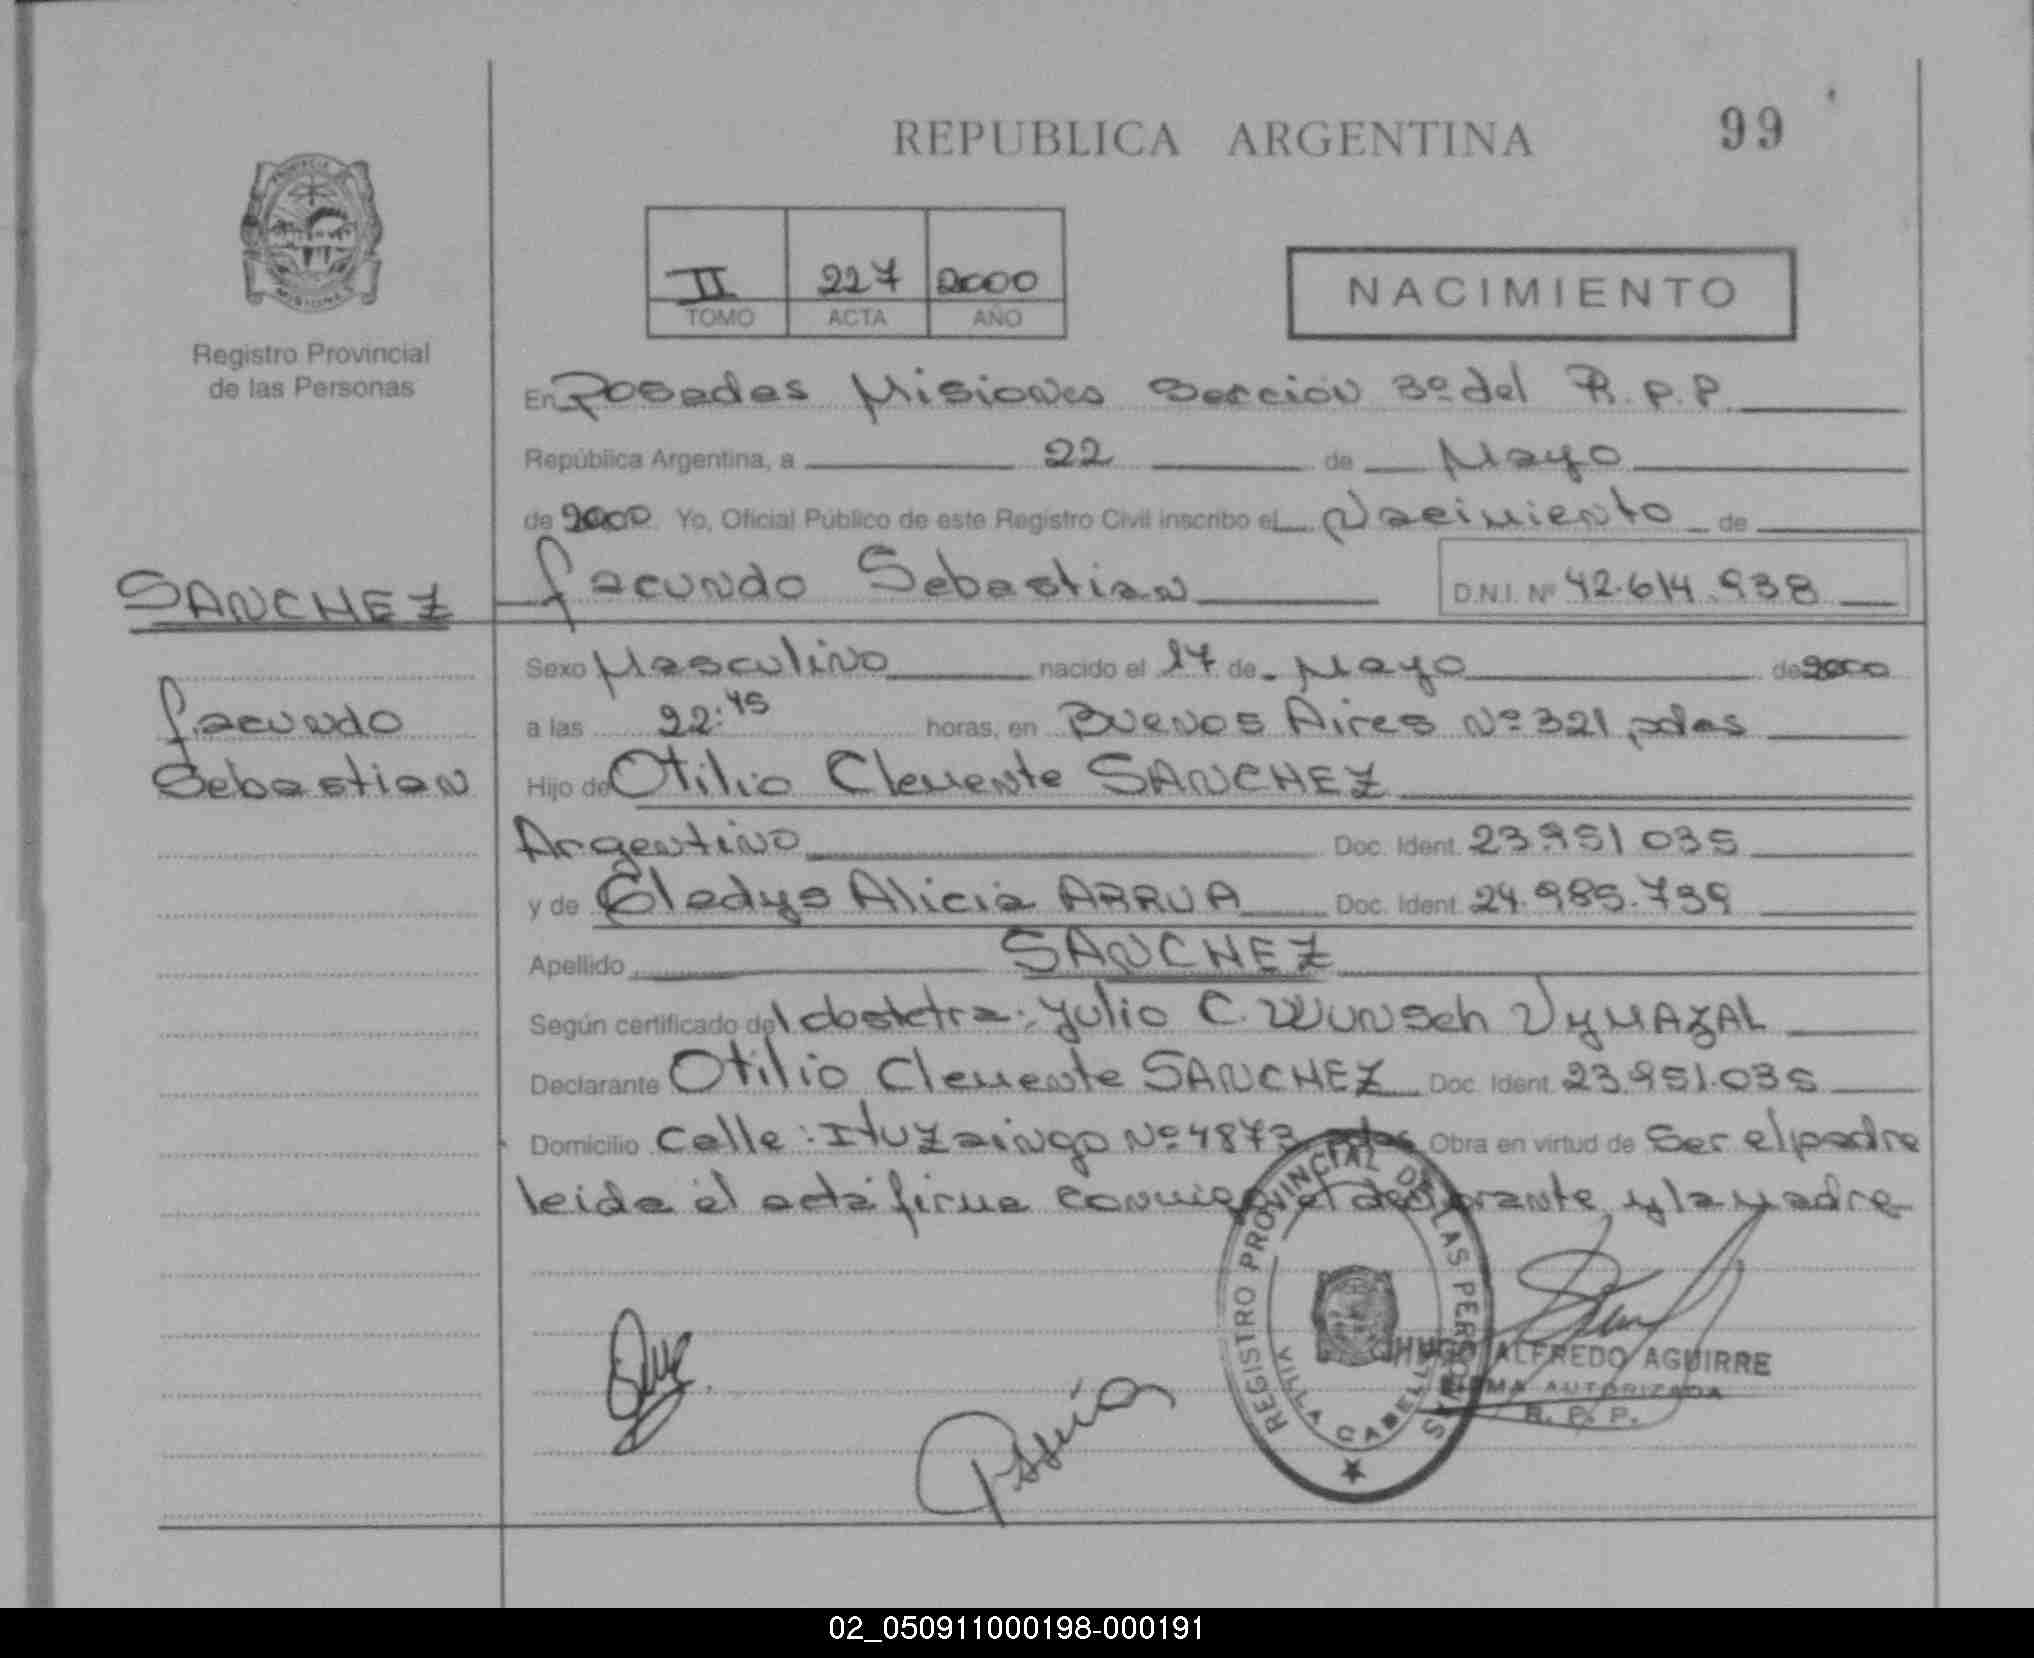 REPUBLICA ARGENTINA
99
PROVINCIA
MISIONES
Registro Provincial
de las Personas
II 227 2000
TOMO ACTA AÑO
NACIMIENTO
En Posadas Misiones Sección 3º del R.P.P.
República Argentina, a 22 de Mayo
de 2000 Yo, Oficial Público de este Registro Civil inscribo el Nacimiento de
SANCHEZ
Facundo Sebastian
D.N.I. Nº 42.614.938
Facundo
Sebastian
Sexo Masculino nacido el 17 de Mayo de 2000
a las 22:45 horas, en Buenos Aires Nº 321 pdas
Hijo de Otilio Clemente SANCHEZ
Argentino Doc. Ident. 23.951.035
y de Gladys Alicia ARRUA Doc. Ident. 24.985.739
Apellido SANCHEZ
Según certificado del obstetra: Julio C. Wunsch VyMAZAL
Declarante Otilio Clemente SANCHEZ Doc. Ident. 23.951.035
Domicilio Calle: Ituzaingo Nº 4873 pdas Obra en virtud de Ser el padre
leida el acta firma conmigo el declarante y la madre
REGISTRO PROVINCIAL DE LAS PERSONAS
VILLA CABELLO
HUGO ALFREDO AGUIRRE
FIRMA AUTORIZADA
R. P. P.
02_050911000198-000191